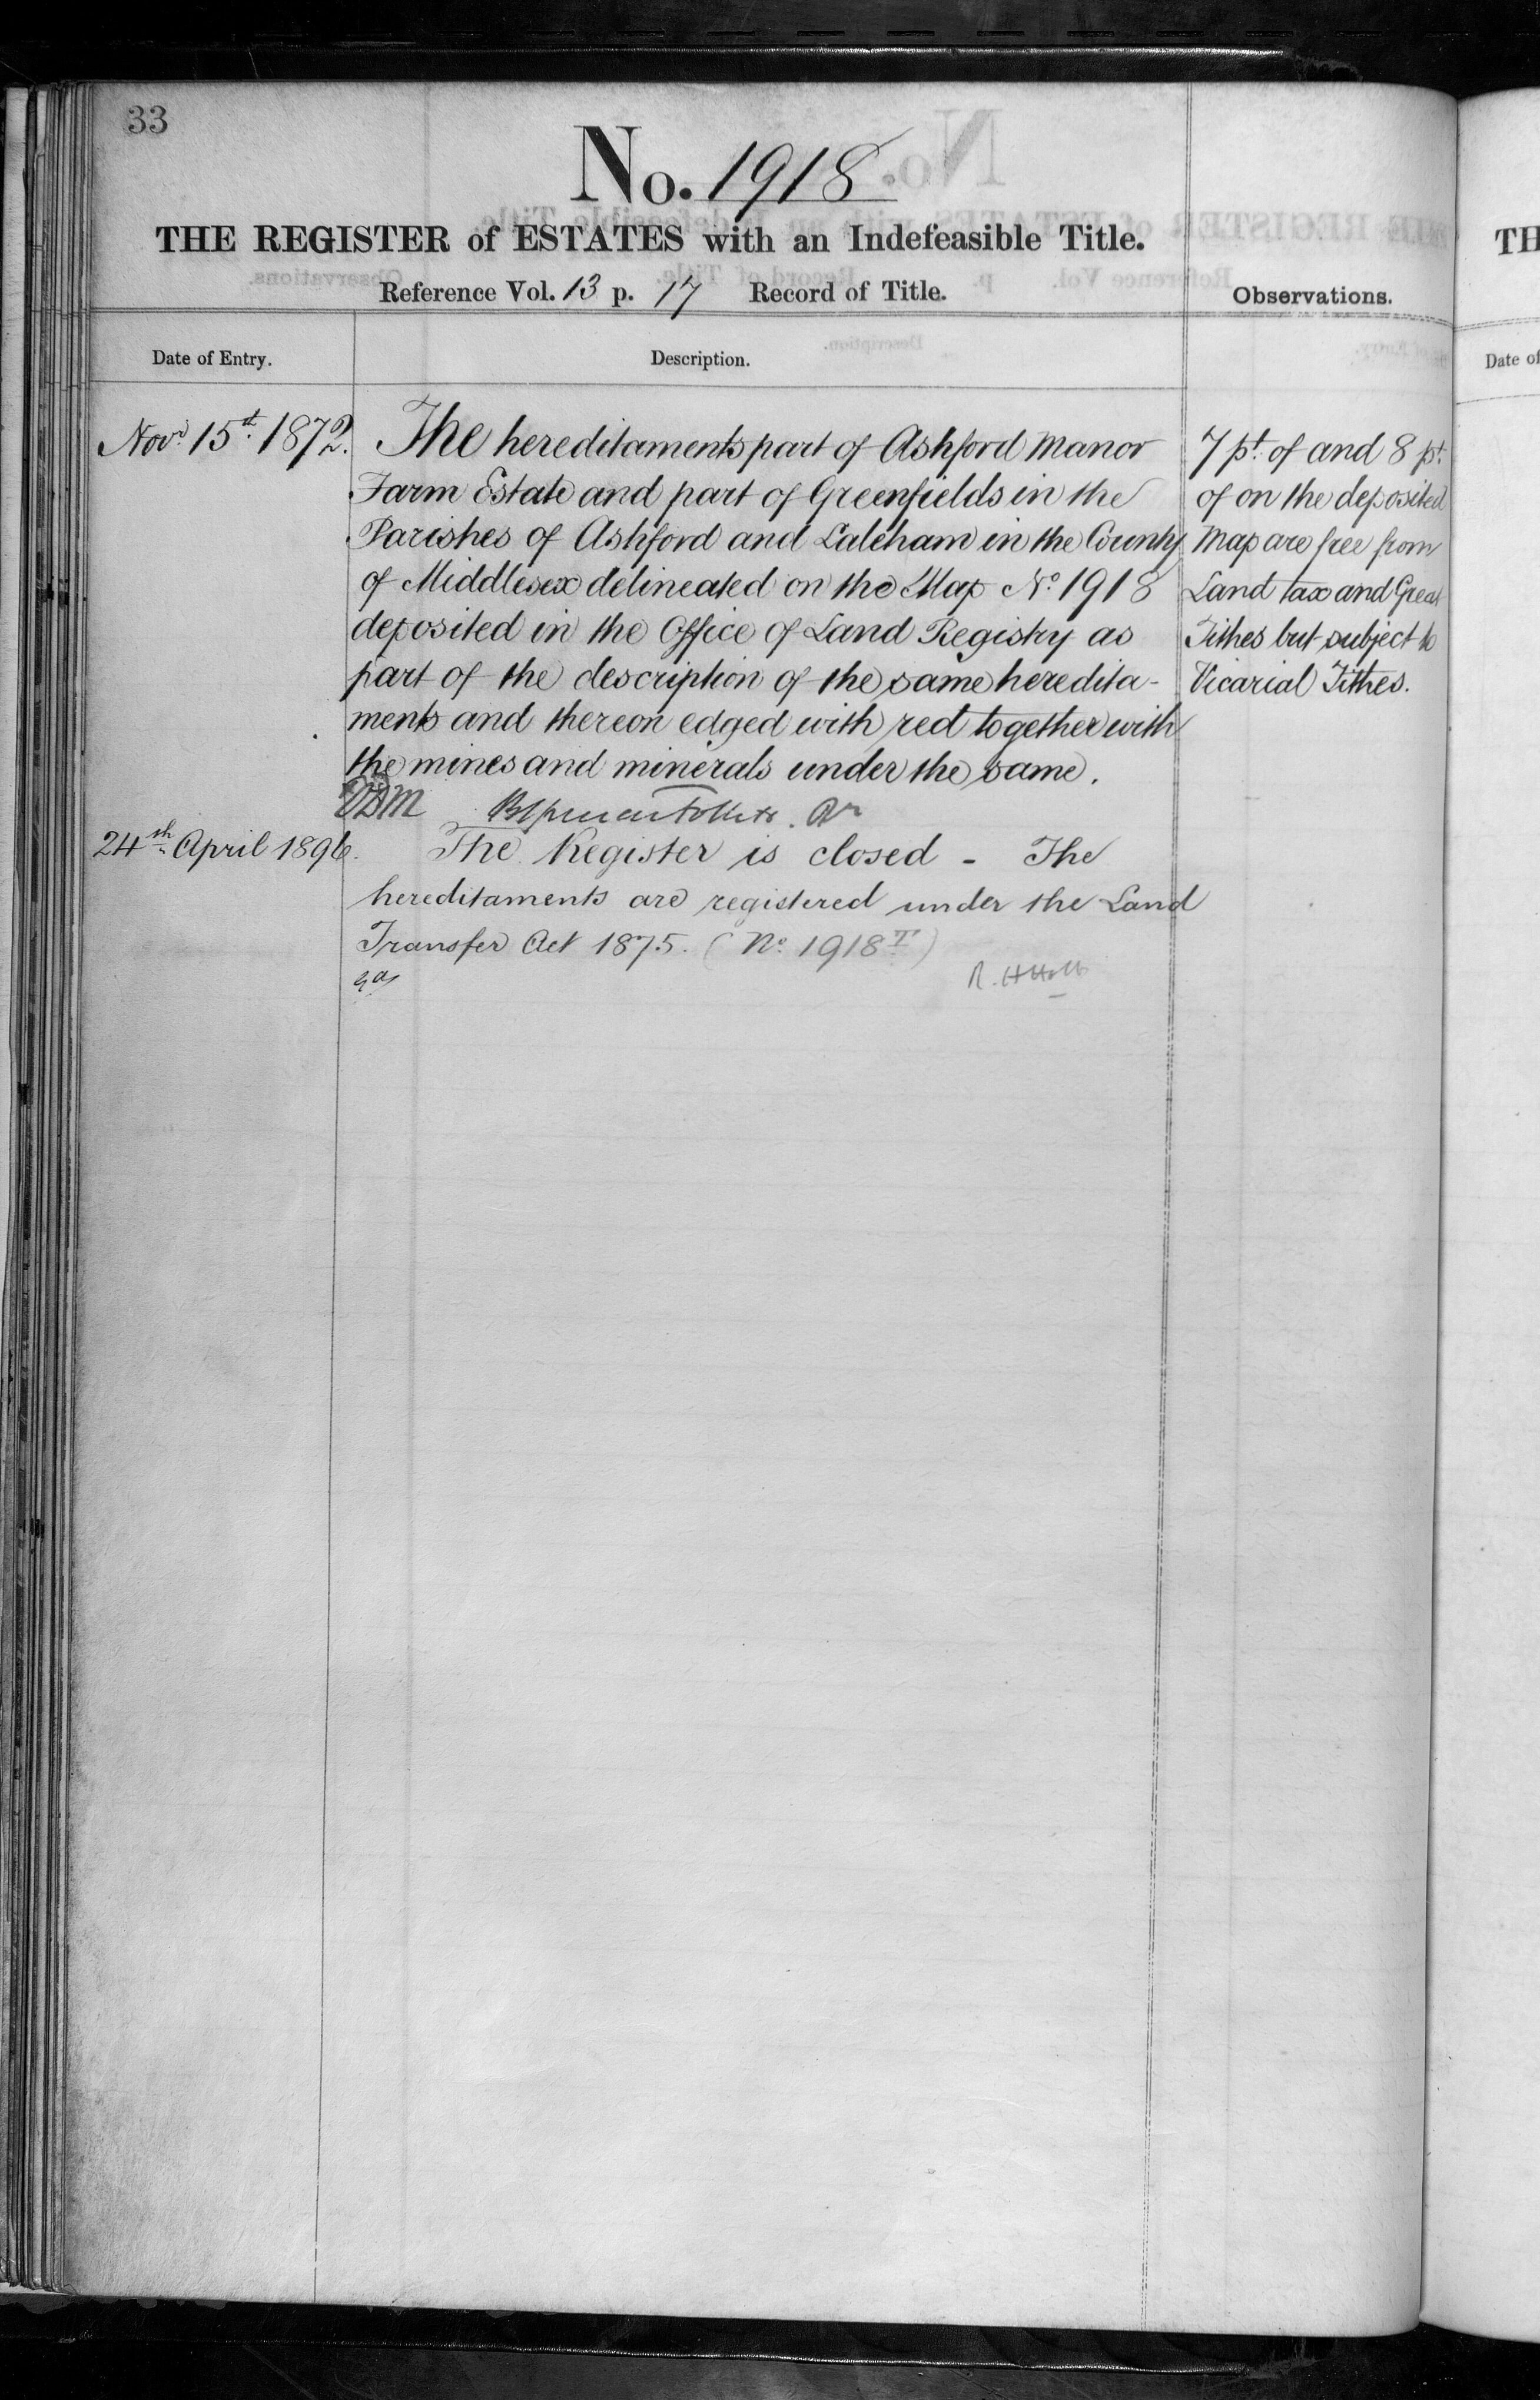 33
No. 1918
THE REGISTER of ESTATES with an Indefeasible Title.
Reference Vol. 13 p. 17 Record of Title.
Observations.
Date of Entry.
Description.
Novr 15th 1872.
The hereditaments part of Ashford Manor
Farm Estate and part of Greenfields in the
Parishes of Ashford and Laleham in the County
of Middlesex delineated on the Map No. 1918
deposited in the Office of Land Registry as
part of the description of the same heredita-
ments and thereon edged with red together with
the mines and minerals under the same.
7 pt. of and 8 pt.
of on the deposited
Map are free from
Land tax and Great
Tithes but subject to
Vicarial Tithes.
24th April 1896.
The Register is closed - The
hereditaments are registered under the Land
Transfer Act 1875. (No. 1918 T)
TH
Date of